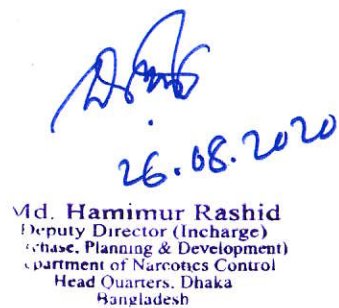 26.08.2020
Md. Hamimur Rashid
Deputy Director (Incharge)
chase, Planning & Development)
partment of Narcotics Control
Head Quarters, Dhaka
Bangladesh